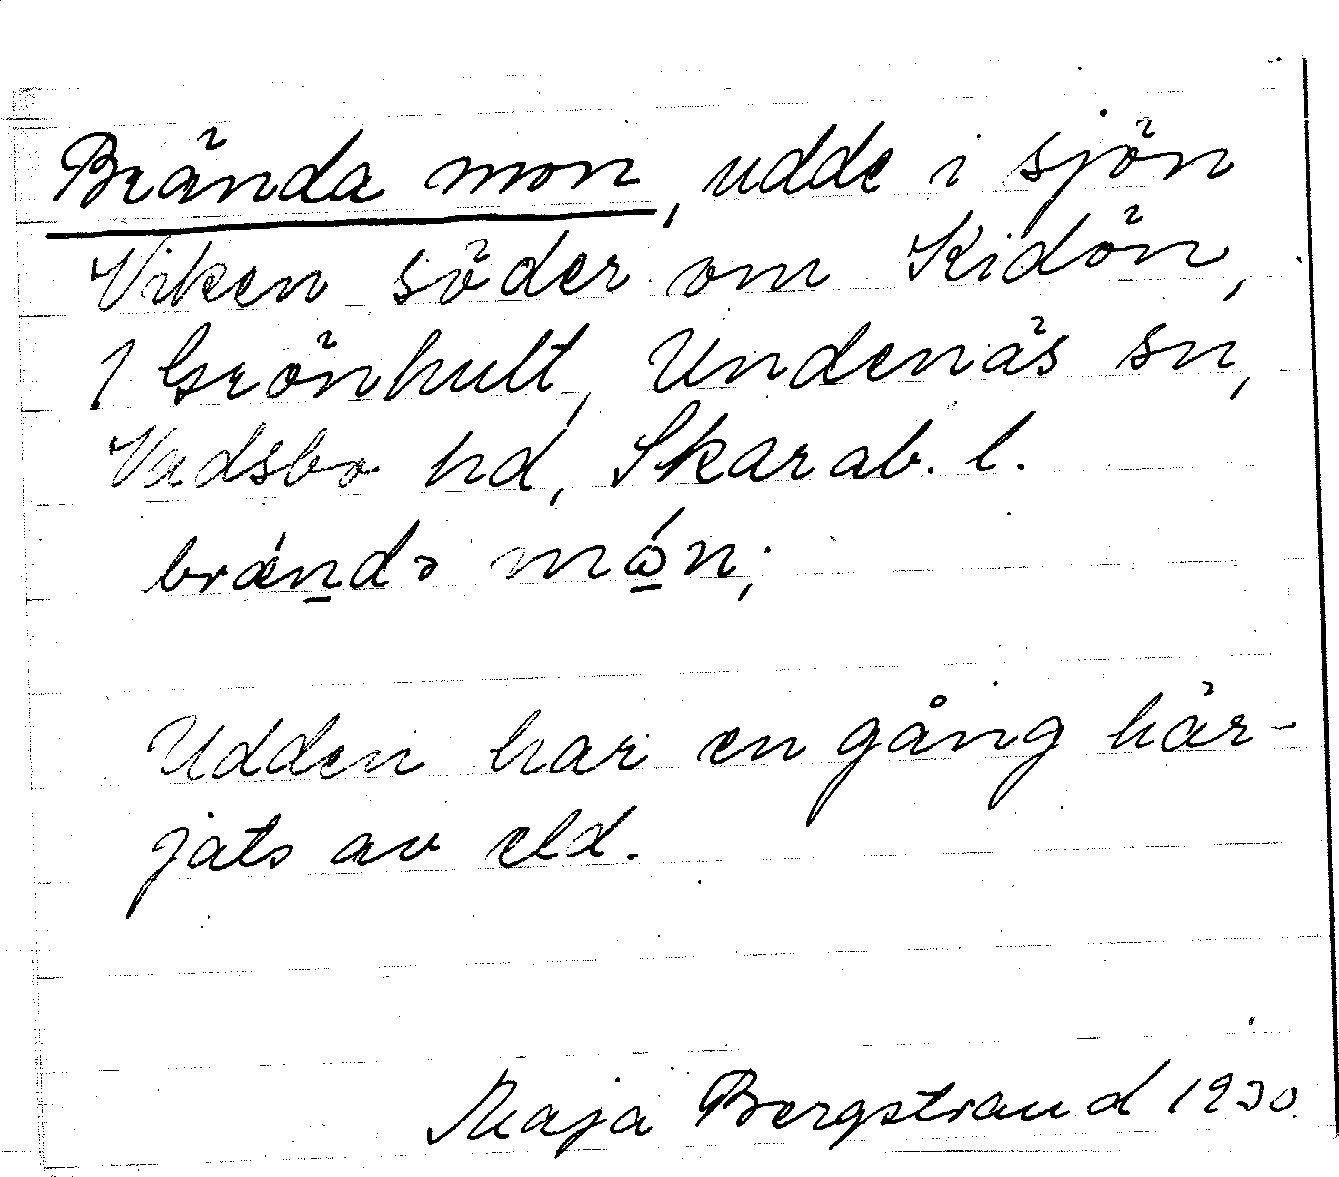 Brända mon, udde i sjön
Viken söder om Kidön,
1 Grönhult, Undenäs sn,
Vadsbo hd, Skarab. l.
brända món;
Udden har en gång här-
jats av eld.
Maja Bergstrand 1930.